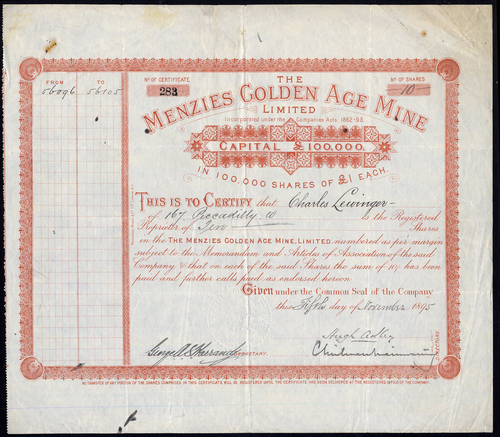 FROM TO
56096 56105
No OF CERTIFICATE
283
THE
No OF SHARES
10
MENZIES GOLDEN AGE MINE
LIMITED
Incorporated under the Companies Acts 1862-93
CAPITAL £100,000.
IN 100,000 SHARES OF £1 EACH.
THIS IS TO CERTIFY that Charles Lewinger
of 167, Piccadilly W is the Registered
Proprietor of Ten Shares
in the THE MENZIES GOLDEN AGE MINE, LIMITED, numbered as per margin
subject to the Memorandum and Articles of Association of the said
Company & that on each of the said Shares the sum of has been
paid and further calls paid as endorsed hereon.
Given under the Common Seal of the Company
this Fifth day of November 1895
Hugh
SECRETARY.
DIRECTORS
NO TRANSFER OF ANY PORTION OF THE SHARES COMPRISED IN THIS CERTIFICATE WILL BE REGISTERED UNTIL THE CERTIFICATE HAS BEEN DELIVERED AT THE REGISTERED OFFICE OF THE COMPANY.